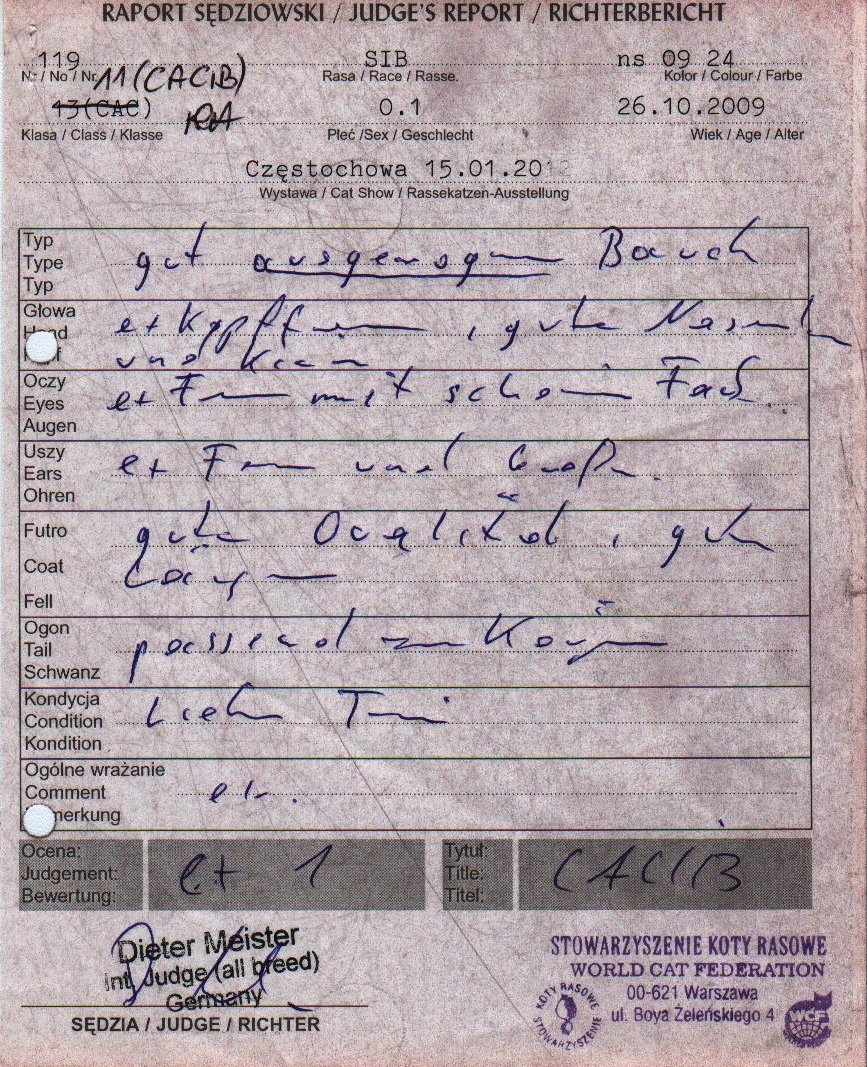 RAPORT SĘDZIOWSKI / JUDGE'S REPORT / RICHTERBERICHT
119 SIB ns 09 24
Nr / No / Nr. 11 (CACIB) Rasa / Race / Rasse. Kolor / Colour / Farbe
13(CAC) 0.1 26.10.2009
Klasa / Class / Klasse Płeć /Sex / Geschlecht Wiek / Age / Alter
Częstochowa 15.01.2012
Wystawa / Cat Show / Rassekatzen-Ausstellung
Typ
Type gut ausgewogen Bauch
Typ
Głowa
Head ex Kopfform, gute Nase
und Kinn
Oczy
Eyes ex Form mit schöner Farb
Augen
Uszy
Ears ex Form und Größe
Ohren
Futro gute Qualität, gute
Coat Länge
Fell
Ogon
Tail passend zum Körper
Schwanz
Kondycja
Condition
Kondition
Ogólne wrażanie
Comment ex.
merkung
Ocena: Tytuł:
Judgement: ex 1 Title: CACIB
Bewertung: Titel:
Dieter Meister
Int. Judge (all breed)
Germany
SĘDZIA / JUDGE / RICHTER
STOWARZYSZENIE KOTY RASOWE
WORLD CAT FEDERATION
00-621 Warszawa
ul. Boya Żeleńskiego 4
KOTY RASOWE
STOWARZYSZENIE
WCF